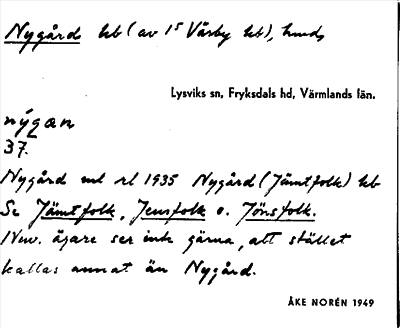 Nygård hb (av 15 Väsby hb), hmds
Lysviks sn, Fryksdals hd, Värmlands län.
nýgæn
37.
Nygård enl rl 1935 Nygård (Jämtfolk) hb
Se Jämtfolk, Jensfolk o. Jönsfolk.
Nuv. ägare ser inte gärna, att stället
kallas annat än Nygård.
ÅKE NORÉN 1949